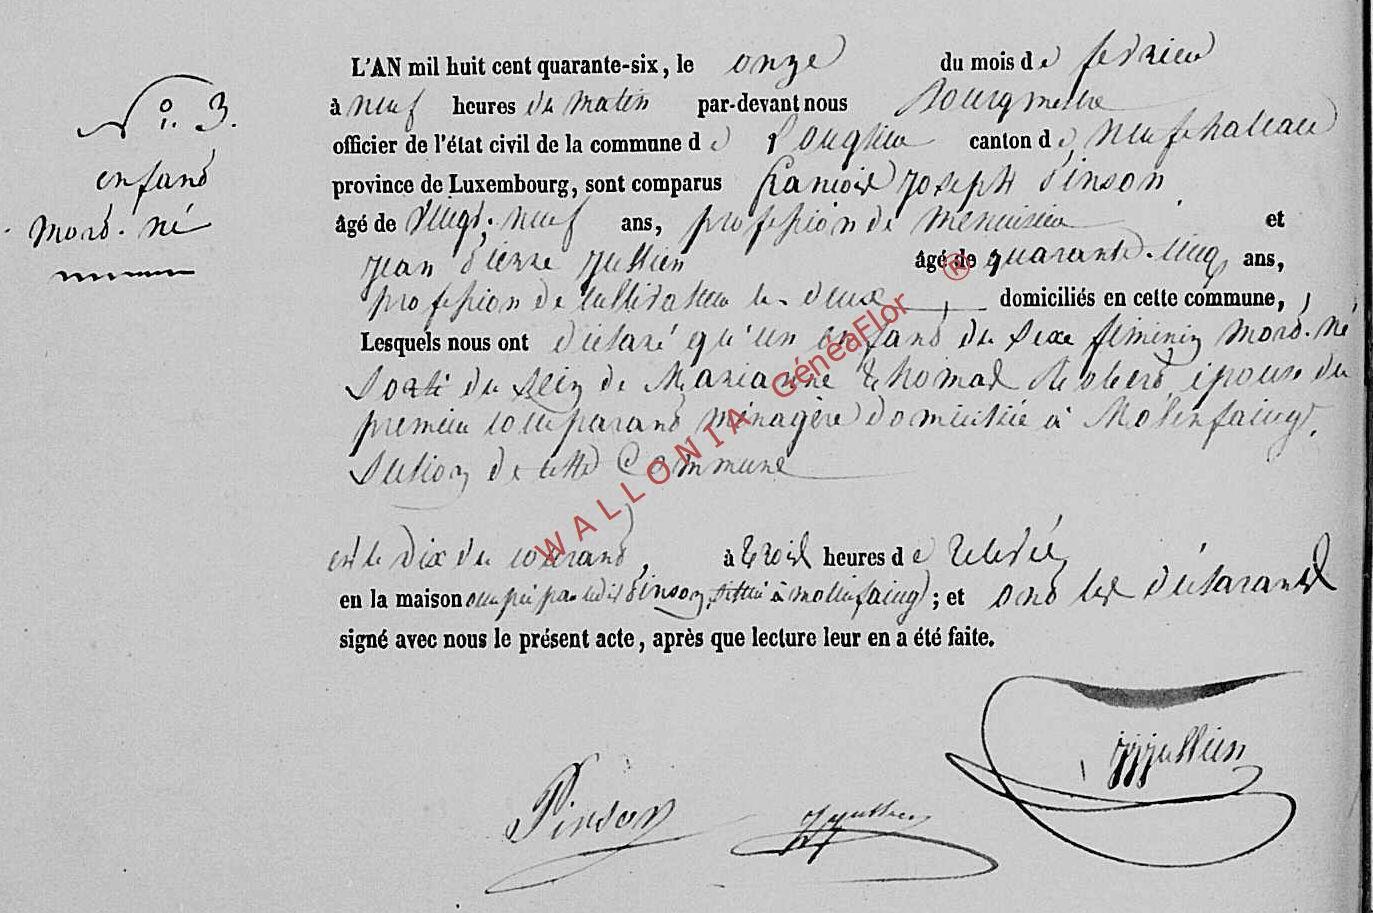 L'AN mil huit cent quarante-six, le onze du mois de fevrier
N°. 3.
à neuf heures du matin par-devant nous Bourgmestre
officier de l'état civil de la commune de Longlier canton de neufchateau
enfant
province de Luxembourg, sont comparus françois Joseph Pinson
mort-né
âgé de vingt-neuf ans, profession de menuisier et
jean Pierre jullien âgé de quarante-cinq ans,
profession de cultivateur les deux domiciliés en cette commune,
Lesquels nous ont déclaré qu'un enfant du sexe féminin mort-né
sorti du sein de Marianne thomas épouse du
premier comparant ménagère domiciliée à Molinfaing,
section de cette Commune
est le dix du courant, à trois heures de relevée
en la maison occupée par ledit Pinson, située à molinfaing ; et ont les déclarants
signé avec nous le présent acte, après que lecture leur en a été faite.
jpjullien
Pinson
WALLONIA GénéaFlor ®